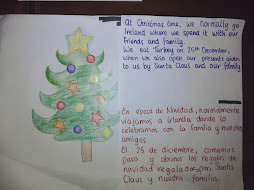 At Christmas time, we normally go
Ireland where we spend it with our
friends and family.
We eat Turkey on 25th December,
when we also open our presents given
to us by Santa Claus and our family
En epoca de Navidad, normalmente
viajamos a Irlanda donde la
celebramos con la Familia y nuestros
amigos.
El 25 de diciembre, comemos
pavo y abrimos los regalos de
navidad regalados por Santa
Claus y nuestra familia.